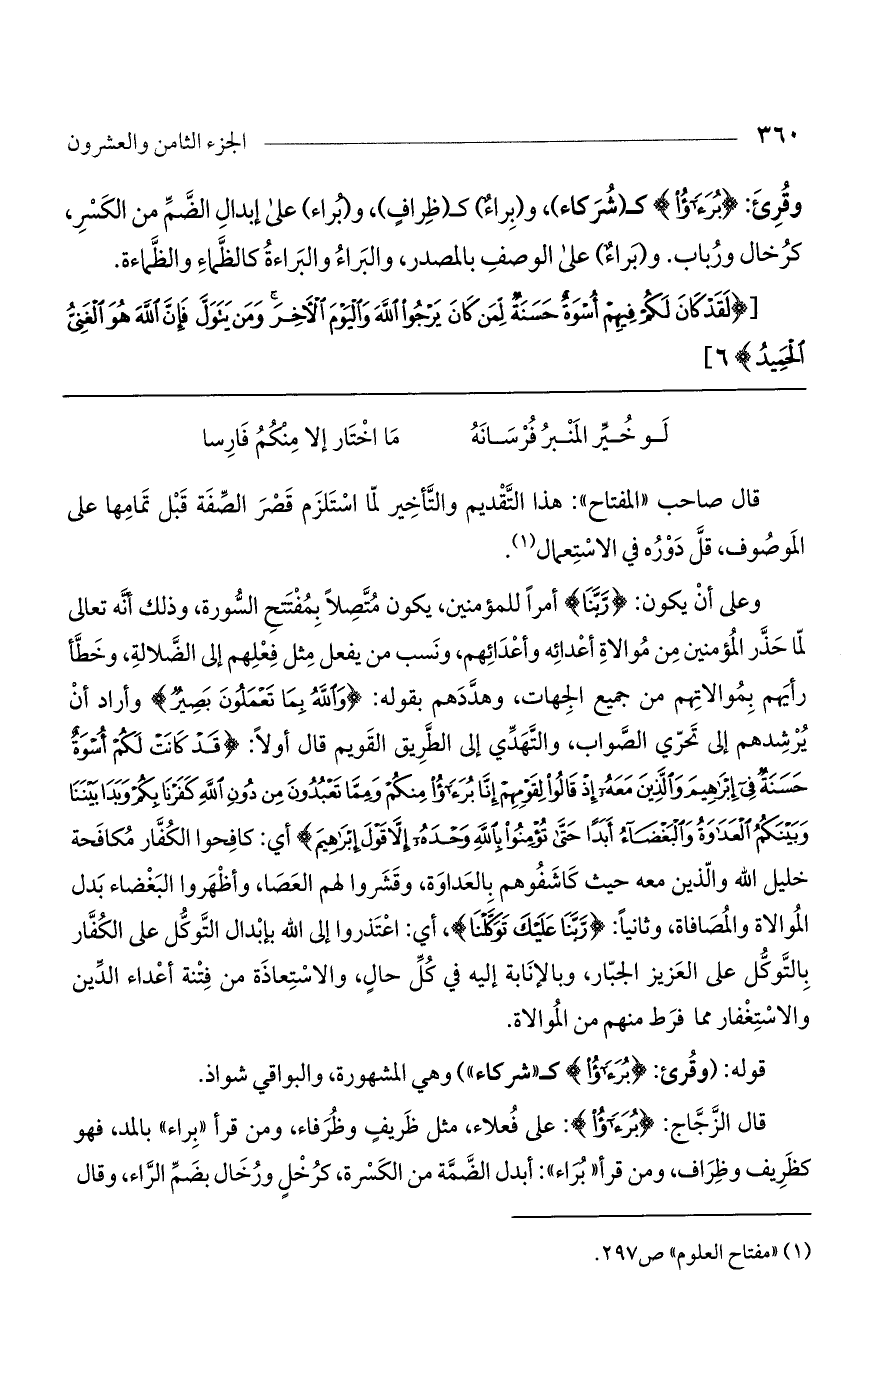 ٣٦٠ الجزء الثامن والعشرون
وقُرِئَ: ﴿بُرَءَٰٓؤُاْ﴾ كـ(شُرَكاء)، و(بِراءٌ) كـ(ظِرافٍ)، و(بُراء) على إبدالِ الضَّمِّ من الكَسْرِ،
كرُخال ورُباب. و(بَراءٌ) على الوصفِ بالمصدر، والبَراءُ والبَراءةُ كالظَّماءِ والظَّماءة.
[﴿لَقَدْ كَانَ لَكُمْ فِيهِمْ أُسْوَةٌ حَسَنَةٌ لِّمَن كَانَ يَرْجُواْ ٱللَّهَ وَٱلْيَوْمَ ٱلْأَخِرَ ۚ وَمَن يَتَوَلَّ فَإِنَّ ٱللَّهَ هُوَ ٱلْغَنِىُّ
ٱلْحَمِيدُ﴾ ٦]
لَـو خُـيِّر المَنْـبرُ فُرْسَـانَهُ مَا اخْتَار إلا مِنْكُمُ فَارِسا
قال صاحب «المفتاح»: هذا التَّقْديم والتَّأخِير لمّا اسْتَلزَم قَصْرَ الصِّفَة قَبْل تمَامِها على
المَوصُوف، قلَّ دَوْرُه في الاسْتِعمال(١).
وعلى أنْ يكون: ﴿رَّبَّنَا﴾ أمراً للمؤمنين، يكون مُتَّصِلاً بِمُفْتَتحِ السُّورة، وذلك أنَّه تعالى
لمّا حَذَّر المُؤمنين مِن مُوالاةِ أعْدائِه وأعْدَائِهم، ونَسب من يفعل مِثل فِعْلِهم إلى الضَّلالةِ، وخَطَّأ
رأيَهم بِمُوالاتِهم من جميع الجِهات، وهدَّدَهم بقوله: ﴿وَٱللَّهُ بِمَا تَعْمَلُونَ بَصِيرٌ﴾ وأراد أنْ
يُرْشِدهم إلى تَحرّي الصَّواب، والتَّهَدِّي إلى الطَّرِيق القَويم قال أولاً: ﴿قَدْ كَانَتْ لَكُمْ أُسْوَةٌ
حَسَنَةٌ فِىٓ إِبْرَٰهِيمَ وَٱلَّذِينَ مَعَهُۥٓ إِذْ قَالُواْ لِقَوْمِهِمْ إِنَّا بُرَءَٰٓؤُاْ مِنكُمْ وَمِمَّا تَعْبُدُونَ مِن دُونِ ٱللَّهِ كَفَرْنَا بِكُمْ وَبَدَا بَيْنَنَا
وَبَيْنَكُمُ ٱلْعَدَٰوَةُ وَٱلْبَغْضَآءُ أَبَدًا حَتَّىٰ تُؤْمِنُواْ بِٱللَّهِ وَحْدَهُۥٓ إِلَّا قَوْلَ إِبْرَٰهِيمَ﴾ أي: كافِحوا الكُفَّار مُكافَحة
خليل الله والّذين معه حيث كَاشَفُوهم بِالعداوَة، وقَشَروا لهم العَصَا، وأظْهَروا البَغْضاء بَدل
المُوالاة والمُصَافاة، وثانياً: ﴿رَّبَّنَا عَلَيْكَ تَوَكَّلْنَا﴾، أي: اعْتَذروا إلى الله بإبْدال التَّوكُّل على الكُفَّار
بِالتَّوكُّل على العَزيز الجبّار، وبالإنَابة إليه في كُلِّ حالٍ، والاسْتِعاذَة من فِتْنة أعْداء الدِّين
والاسْتِغْفار مما فرَط منهم من المُوالاة.
قوله: (وقُرئ: ﴿بُرَءَٰٓؤُاْ﴾ كـ«شركاء») وهي المشهورة، والبواقي شواذ.
قال الزَّجَّاج: ﴿بُرَءَٰٓؤُاْ﴾: على فُعلاء، مثل ظَريفٍ وظُرَفاء، ومن قرأ «بِراء» بالمد، فهو
كظَرِيف وظِرَاف، ومن قرأ« بُرَاء»: أبدل الضَّمَّة من الكَسْرة، كرُخْلٍ ورُخَال بضَمِّ الرَّاء، وقال
(١) «مفتاح العلوم» ص٢٩٧.